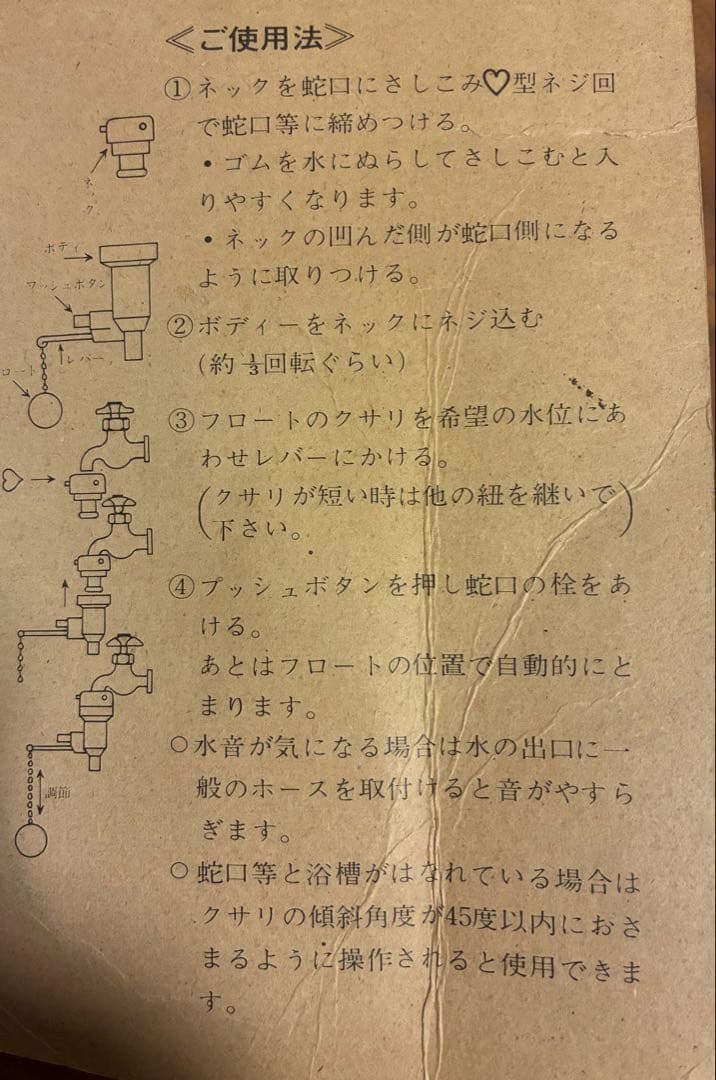 ≪ご使用法≫
①ネックを蛇口にさしこみ♡型ネジ回
で蛇口等に締めつける。
・ゴムを水にぬらしてさしこむと入
りやすくなります。
・ネックの凹んだ側が蛇口側になる
ように取りつける。
②ボディーをネックにネジ込む
(約⅓回転ぐらい)
③フロートのクサリを希望の水位にあ
わせレバーにかける。
(クサリが短い時は他の紐を継いで
下さい。)
④プッシュボタンを押し蛇口の栓をあ
ける。
あとはフロートの位置で自動的にと
まります。
○水音が気になる場合は水の出口に一
般のホースを取付けると音がやすら
ぎます。
○蛇口等と浴槽がはなれている場合は
クサリの傾斜角度が45度以内におさ
まるように操作されると使用できま
す。
ネック
ボディ
プッシュボタン
レバー
ロート
♡
調節